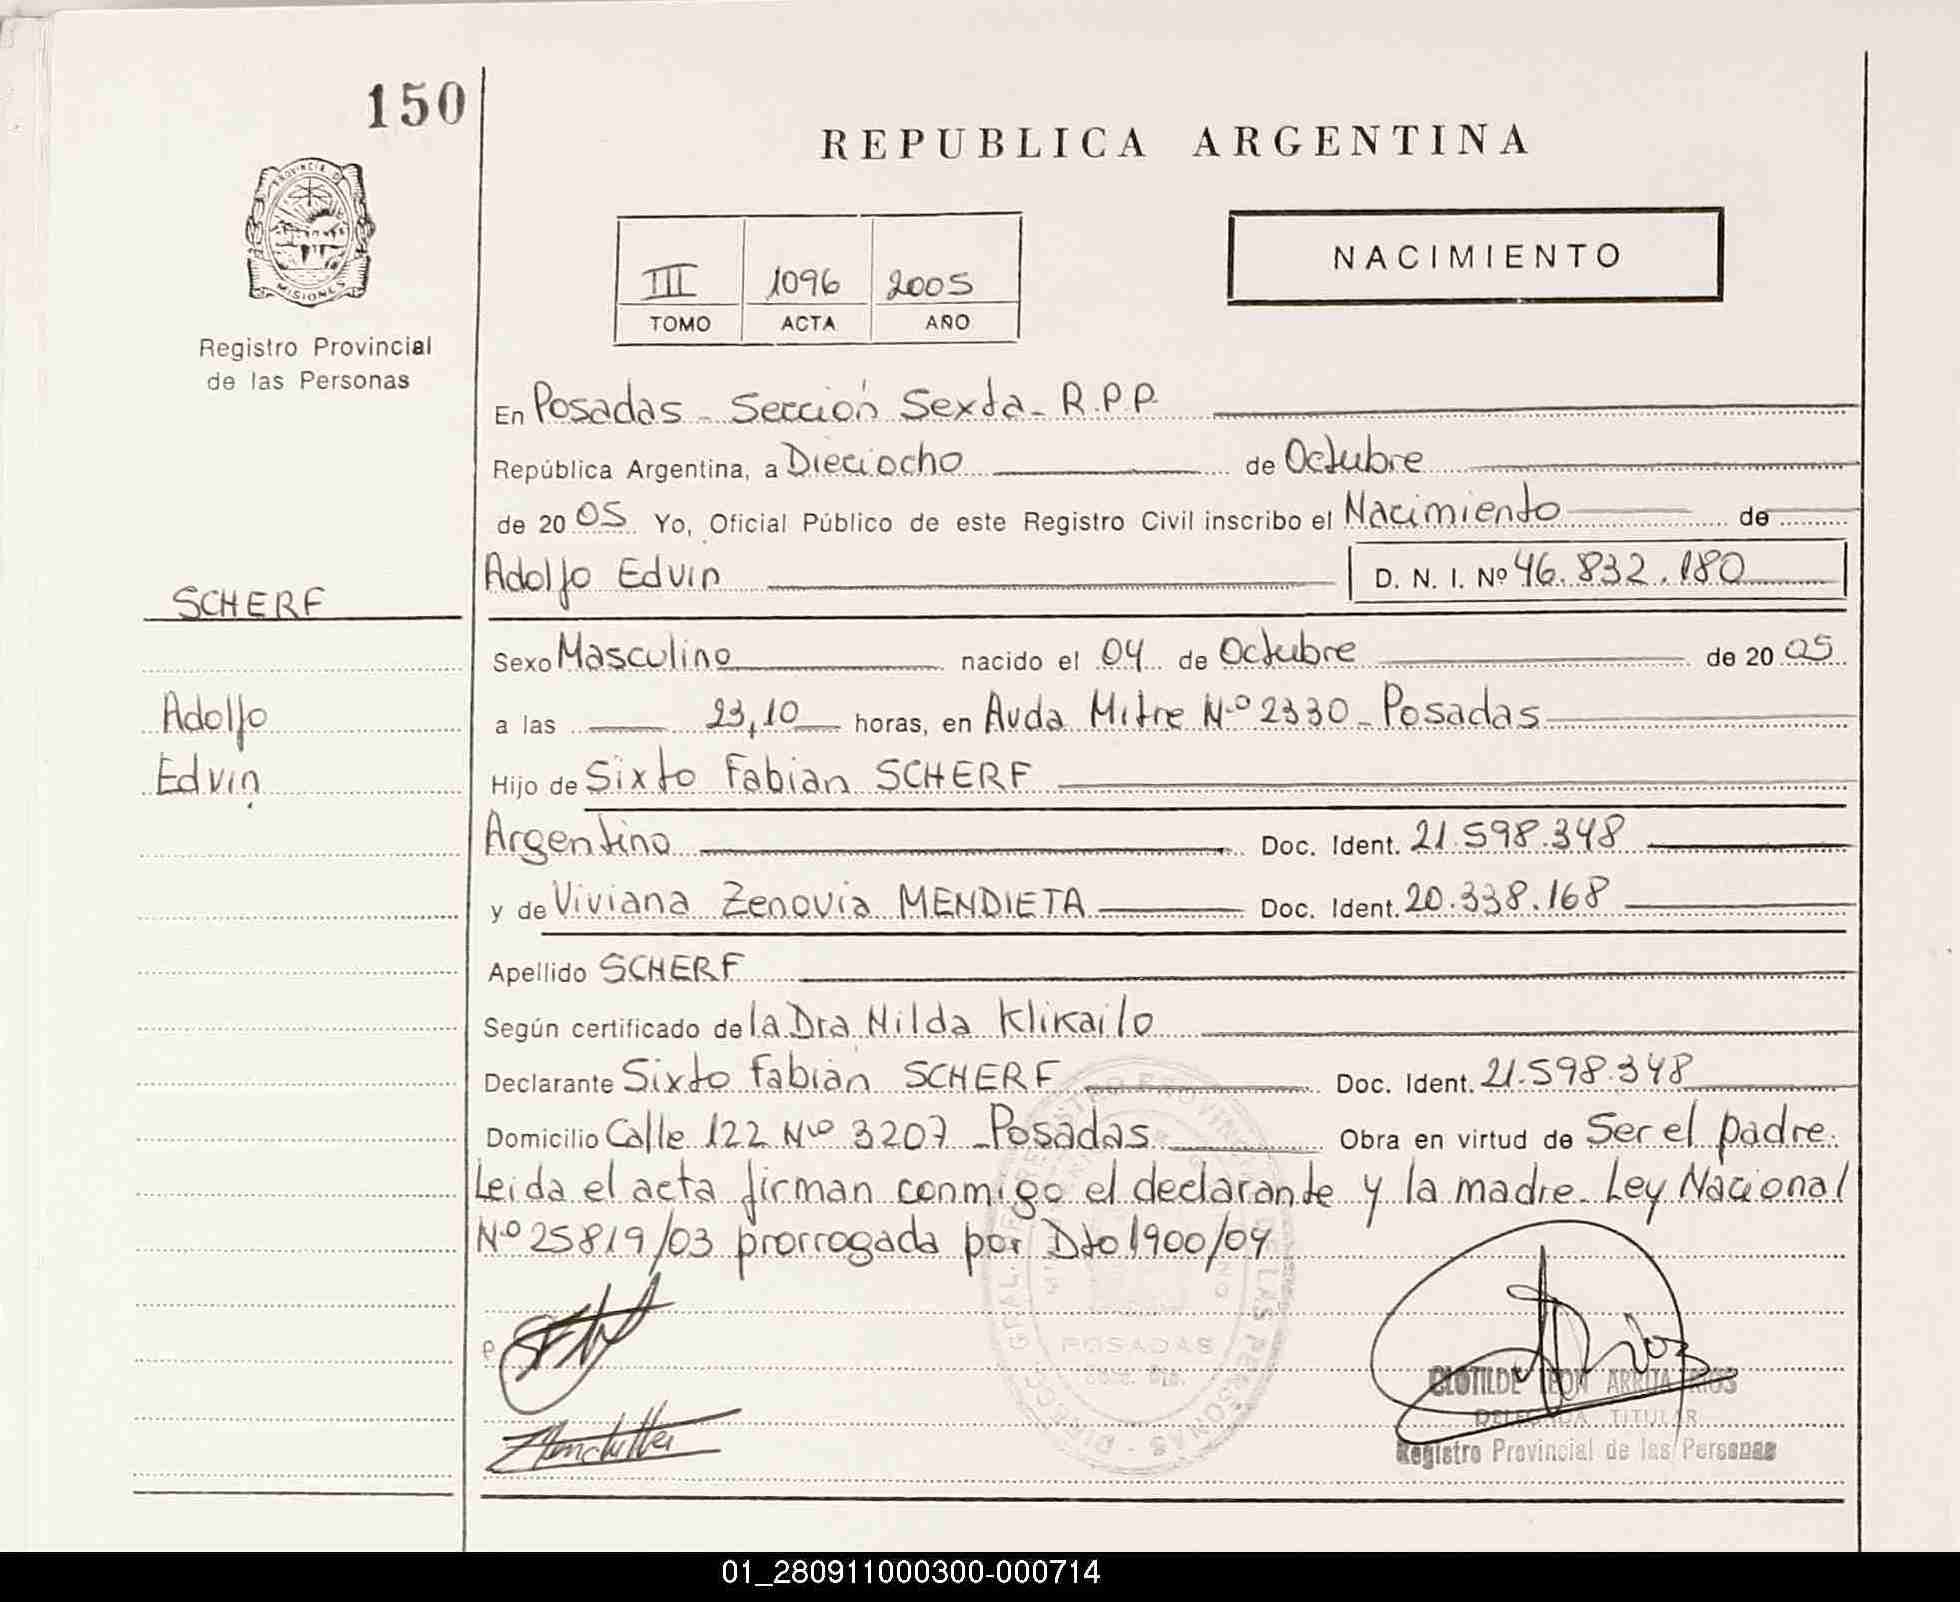 150
REPUBLICA ARGENTINA
PROVINCIA DE
MISIONES
NACIMIENTO
III 1096 2005
TOMO ACTA AÑO
Registro Provincial
de las Personas
En Posadas - Sección Sexta - R.P.P.
República Argentina, a Dieciocho de Octubre
de 2005 Yo, Oficial Público de este Registro Civil inscribo el Nacimiento de
Adolfo Edvin D. N. I. Nº 46.832.180
SCHERF
Sexo Masculino nacido el 04 de Octubre de 2005
Adolfo
a las 23,10 horas, en Avda Mitre Nº 2330 - Posadas
Edvin
Hijo de Sixto Fabian SCHERF
Argentino Doc. Ident. 21.598.348
y de Viviana Zenovia MENDIETA Doc. Ident. 20.338.168
Apellido SCHERF
Según certificado de la Dra Nilda Klikailo
Declarante Sixto Fabian SCHERF Doc. Ident. 21.598.348
Domicilio Calle 122 Nº 3207 - Posadas Obra en virtud de Ser el padre.
Leida el acta firman conmigo el declarante y la madre. Ley Nacional
Nº 25819/03 prorrogada por Dto 1900/04
POSADAS
CLOTILDE RIOS
DELEGADA TITULAR
Registro Provincial de las Personas
01_280911000300-000714